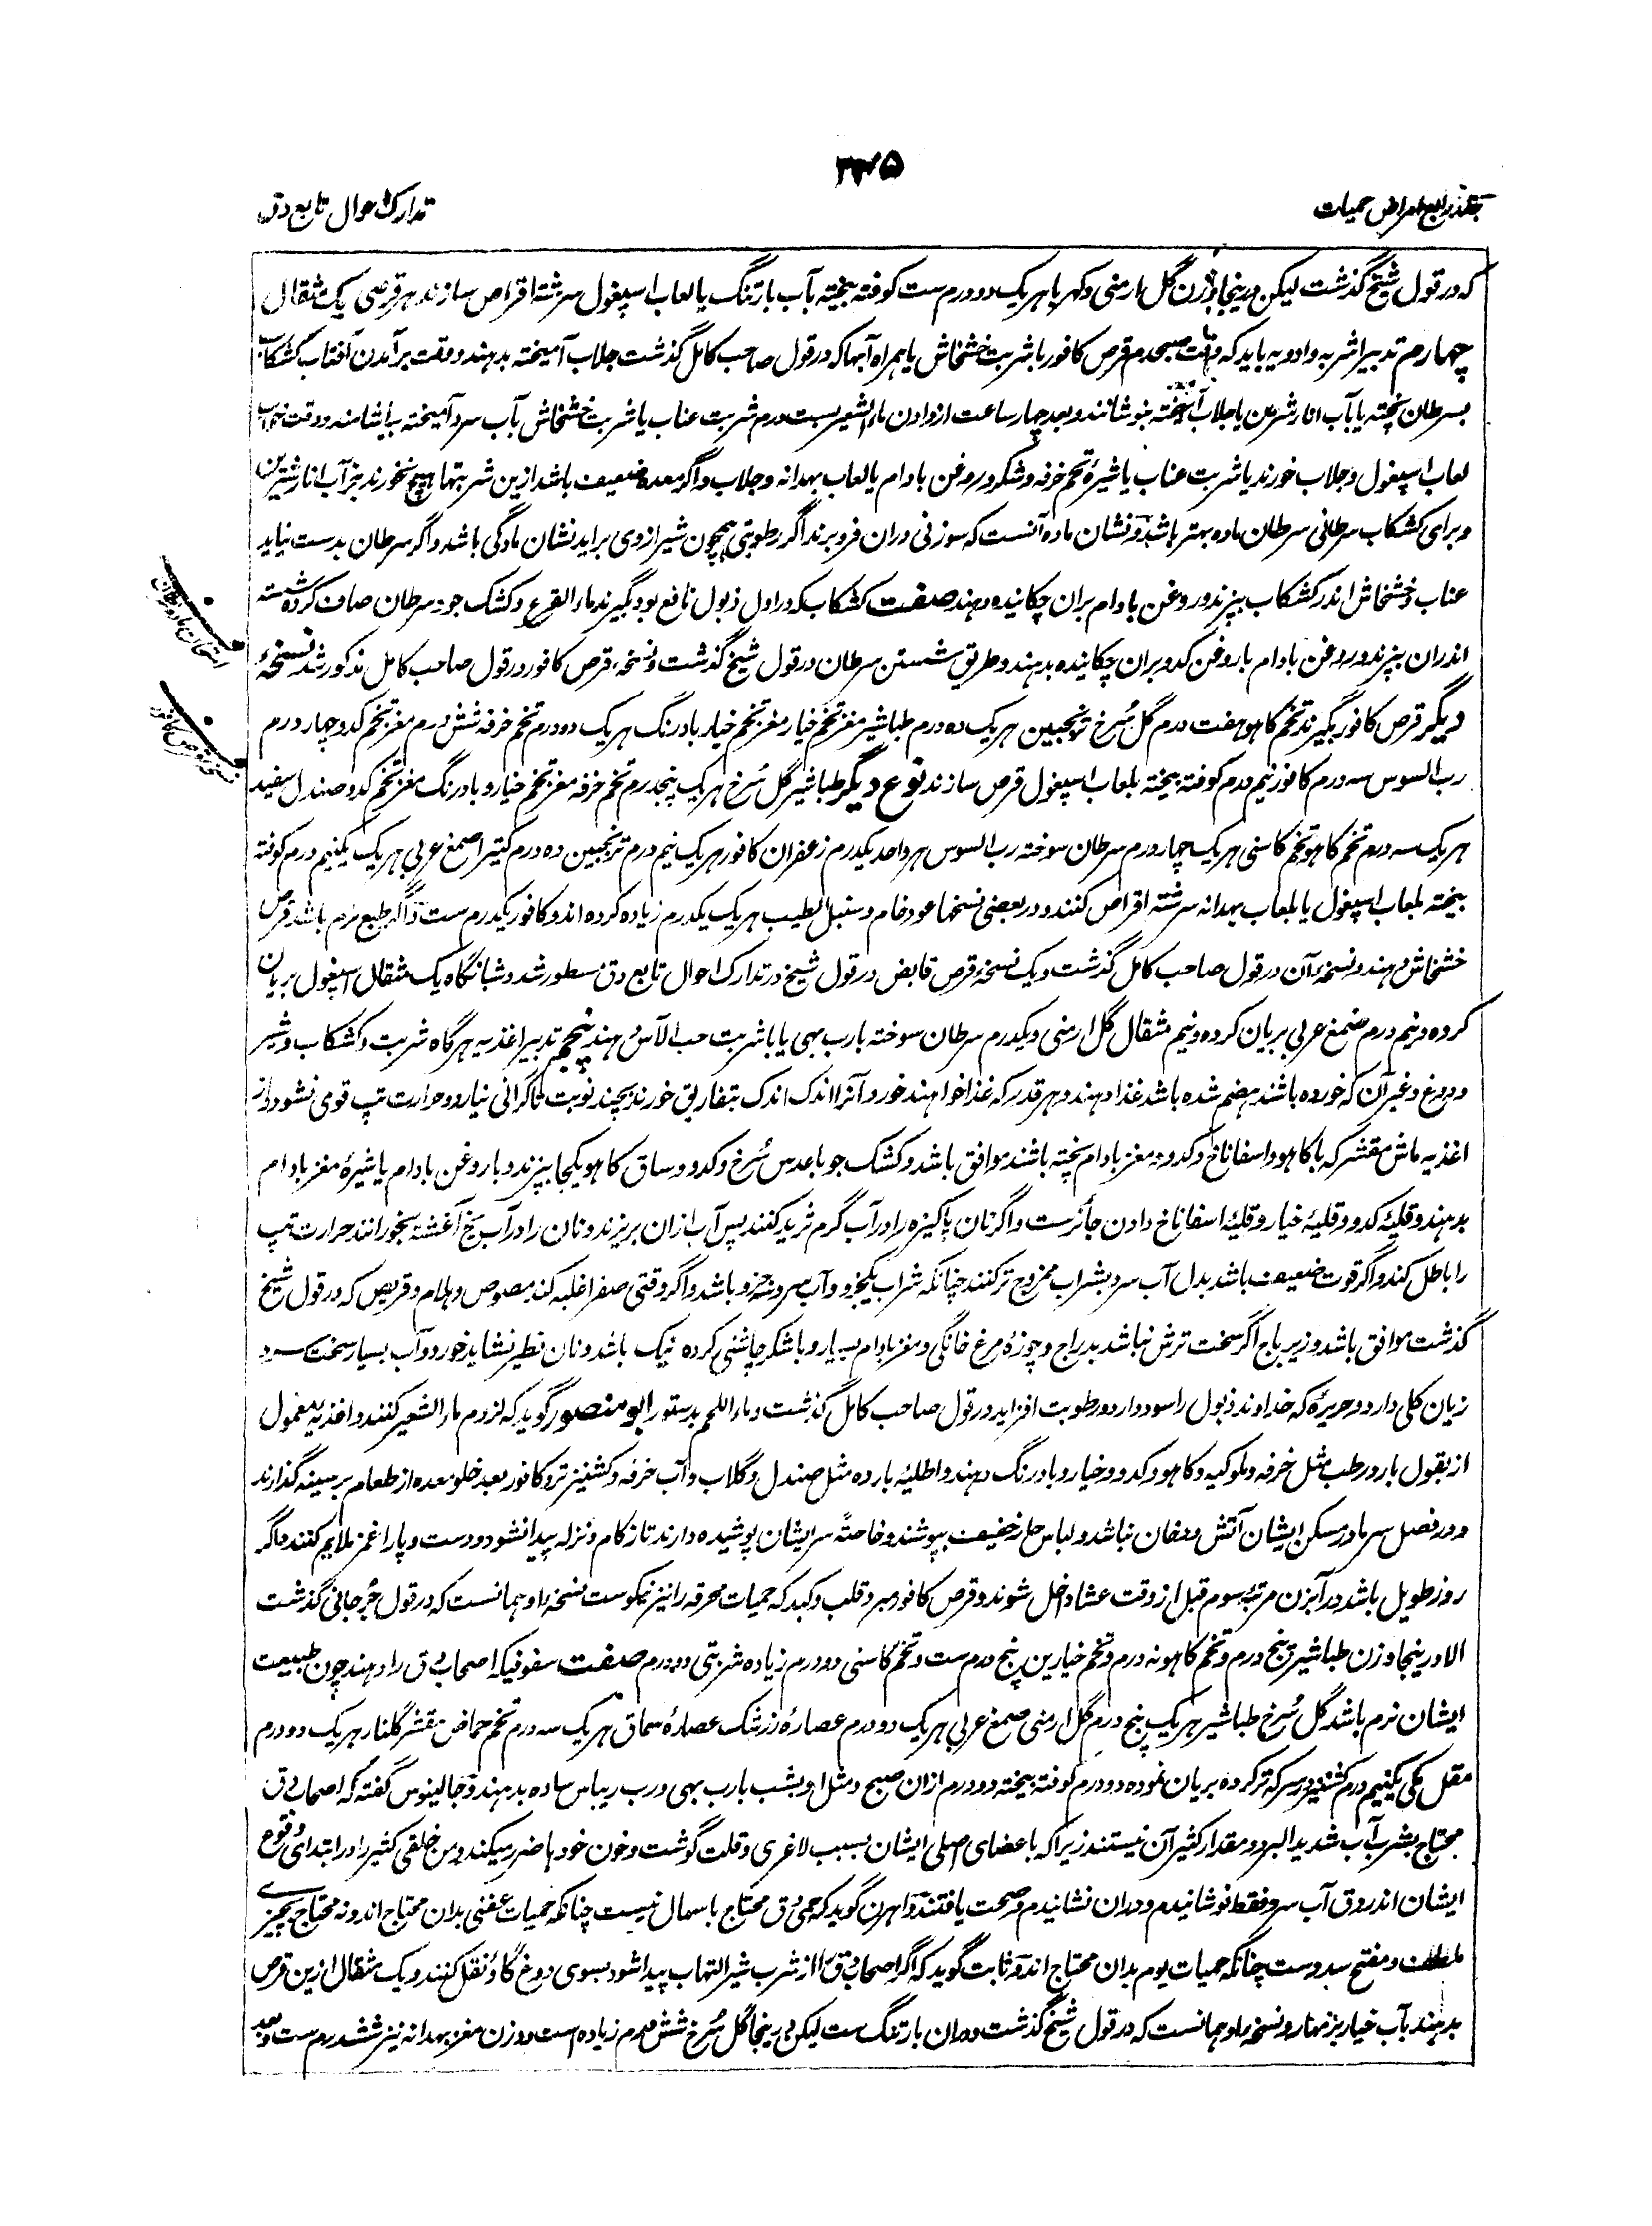 ۳۳۵
تدارک احوال تابع دق
که در قول شیخ گذشت لیکن درینجا وزن گل ارمنی و کهربا هر یک دو درم ست کوفته بیخته بآب بارتنگ یا لعاب اسپغول سرشته اقراص سازند هر قرصی یک مثقال
چهارم تدبیر اشربه و ادویه باید که وقت صبحدم قرص کافور با شربت خشخاش یا همراه آبها که در قول صاحب کامل گذشت جلاب آمیخته بدهند و وقت برآمدن آفتاب کشکاب
بسرطان پخته یا بآب انار شیرین یا جلاب آمیخته بنوشانند و بعد چهار ساعت از دادن ماء الشعیر بست درم شربت عناب یا شربت خشخاش بآب سرد آمیخته بیاشامند و وقت خواب
لعاب اسپغول و جلاب خورند یا شربت عناب یا شیرۀ تخم خرفه و شکر و روغن بادام یا لعاب بهدانه و جلاب و اگر معده ضعیف باشد ازین شربتها هیچ نخورند بجز آب انار شیرین
و برای کشکاب سرطانی سرطان ماده بهتر باشد و نشان ماده آنست که سوزنی دران فرو برند اگر رطوبتی همچون شیر از وی براید نشان مادگی باشد و اگر سرطان بدست نیاید
عناب و خشخاش اندر کشکاب بپزند و روغن بادام بران چکانیده دهند صفت کشکاب که در اول ذبول نافع بود بگیرند ماء القرع و کشک جو و سرطان صاف کرده شسته
اندران بپزند و روغن بادام یا روغن کدو بران چکانیده بدهند و طریق شستن سرطان در قول شیخ گذشت و نسخه قرص کافور در قول صاحب کامل مذکور شد نسخۀ
دیگر قرص کافور بگیرند تخم کاهو هفت درم گل سُرخ ترنجبین هر یک ده درم طباشیر مغز تخم خیار مغز تخم خیار بادرنگ هر یک دو درم تخم خرفه شش درم مغز تخم کدو چهار درم
رب السوس سه درم کافور نیم درم کوفته بیخته بلعاب اسپغول قرص سازند نوع دیگر طباشیر گل سُرخ هر یک پنجدرم تخم خرفه مغز تخم خیار و بادرنگ مغز تخم کدو صندل سفید
هر یک سه درم تخم کاهو تخم کاسنی هر یک چهار درم سرطان سوخته رب السوس هر واحد یکدرم زعفران کافور هر یک نیم درم ترنجبین ده درم کتیرا صمغ عربی هر یک یکنیم درم کوفته
بیخته بلعاب اسپغول یا بلعاب بهدانه سرشته اقراص کنند و در بعضی نسخها عود خام و سنبل الطیب هر یک یکدرم زیاده کرده اند و کافور یکدرم ست و اگر طبع نرم باشد قرص
خشخاش دهند و نسخۀ آن در قول صاحب کامل گذشت و یک نسخۀ قرص قابض در قول شیخ در تدارک احوال تابع دق مسطور شد و شبانگاه یک مثقال اسپغول بریان
کرده و نیم درم صمغ عربی بریان کرده و نیم مثقال گل ارمنی و یکدرم سرطان سوخته بارب بهی یا باشربت حب الآس دهند پنجم تدبیر اغذیه هرگاه شربت و کشکاب و شیر
و دوغ و غیر آن که خورده باشند هضم شده باشد غذا دهند و هر قدر که غذا خواهند خورد آنرا اندک اندک بتفاریق خورند بچند نوبت تا گرانی نیارد و حرارت تپ قوی نشود و از
اغذیه ماش مقشر که با کاهو و اسفاناخ و کدو و مغز بادام پخته باشند موافق باشد و کشک جو با عدس سُرخ و کدو و ساق کاهو یکجا بپزند و با روغن بادام یا شیرۀ مغز بادام
بدهند و قلیۀ کدو و قلیۀ خیار و قلیۀ اسفاناخ دادن جائزست و اگر نان پاکیزه را در آب گرم ثرید کنند پس آب ازان بریزند و نان را در آب یخ آغشته بخورانند حرارت تپ
را باطل کند و اگر قوت ضعیف باشد بدل آب سرد بشراب ممزوج تر کنند چنانکه شراب یکجزو و آب سرد جزو باشد و اگر وقتی صفرا غلبه کند مصوص و هلام و قریص که در قول شیخ
گذشت موافق باشد و زیرباج اگر سخت ترش نباشد بدراج و چوزۀ مرغ خانگی و مغز بادام بسیار و باشکر چاشنی کرده نیک باشد و نان فطیر نشاید خورد و آب بسیار سخت سرد
زیان کلی دارد و حریرۀ که خداوند ذبول را سود دارد و رطوبت افزاید در قول صاحب کامل گذشت و ماء اللحم بدستور ابو منصور گوید که لزوم ماء الشعیر کنند و اغذیه معمول
از بقول بارد رطب مثل خرفه و ملوکیه و کاهو و کدو و خیار و بادرنگ دهند و اطلیۀ بارده مثل صندل و گلاب و آب خرفه و کشنیز تر و کافور بعد خلو معده از طعام بر سینه گذارند
و در فصل سرما در مسکن ایشان آتش و دخان نباشد و لباس حار خفیف بپوشند و خاصةً سر ایشان پوشیده دارند تا زکام و نزله پیدا نشود و دست و پا را غمز ملایم کنند و اگر
روز طویل باشد در آبزن مرتبۀ سوم قبل از وقت عشا داخل شوند و قرص کافور مبرد قلب و کبد که حمیات محرقه را نیز نیکوست نسخۀ او همانست که در قول جُرجانی گذشت
الا درینجا وزن طباشیر پنج درم و تخم کاهو نه درم و تخم خیارین پنج درم ست و تخم کاسنی دو درم زیاده شربتی دو درم صفت سفوفیکه اصحاب دق را دهند چون طبیعت
ایشان نرم باشد گل سُرخ طباشیر هر یک پنج درم گل ارمنی صمغ عربی هر یک دو درم عصارۀ زرشک عصارۀ سماق هر یک سه درم تخم حماض مقشر گلنار هر یک دو درم
مقل مکی یکنیم درم کشنیز در سرکه تر کرده بریان نموده دو درم کوفته بیخته دو درم ازان صبح و مثل او بشب بارب بهی و رب ریباس ساده بدهند و جالینوس گفته که اصحاب دق
محتاج بشرب آب شدید البرد و مقدار کثیر آن نیستند زیرا که باعضای اصلی ایشان بسبب لاغری و قلت گوشت و خون خودها ضرر میکند و من خلقی کثیر را در ابتدای وقوع
ایشان اندر دق آب سرد فقط نوشانیدم و دران نشانیدم و صحت یافتند و اهرن گوید که حمی دق محتاج باسهال نیست چنانکه حمیات عفنی بدان محتاج اند و نه محتاج بچیزی
ملطف و مفتح سدوست چنانکه حمیات یوم بدان محتاج اند و ثابت گوید که اگر اصحاب دق را از شرب شیر التهاب پیدا شود بسوی دوغ گاو نقل کنند و یک مثقال ازین قرص
بدهند بآب خیار بزمهار و نسخۀ او همانست که در قول شیخ گذشت و دران بارتنگ ست لیکن درینجا گل سُرخ شش درم زیاده است و وزن مغز بهدانه نیز ششدرم ست و بعد